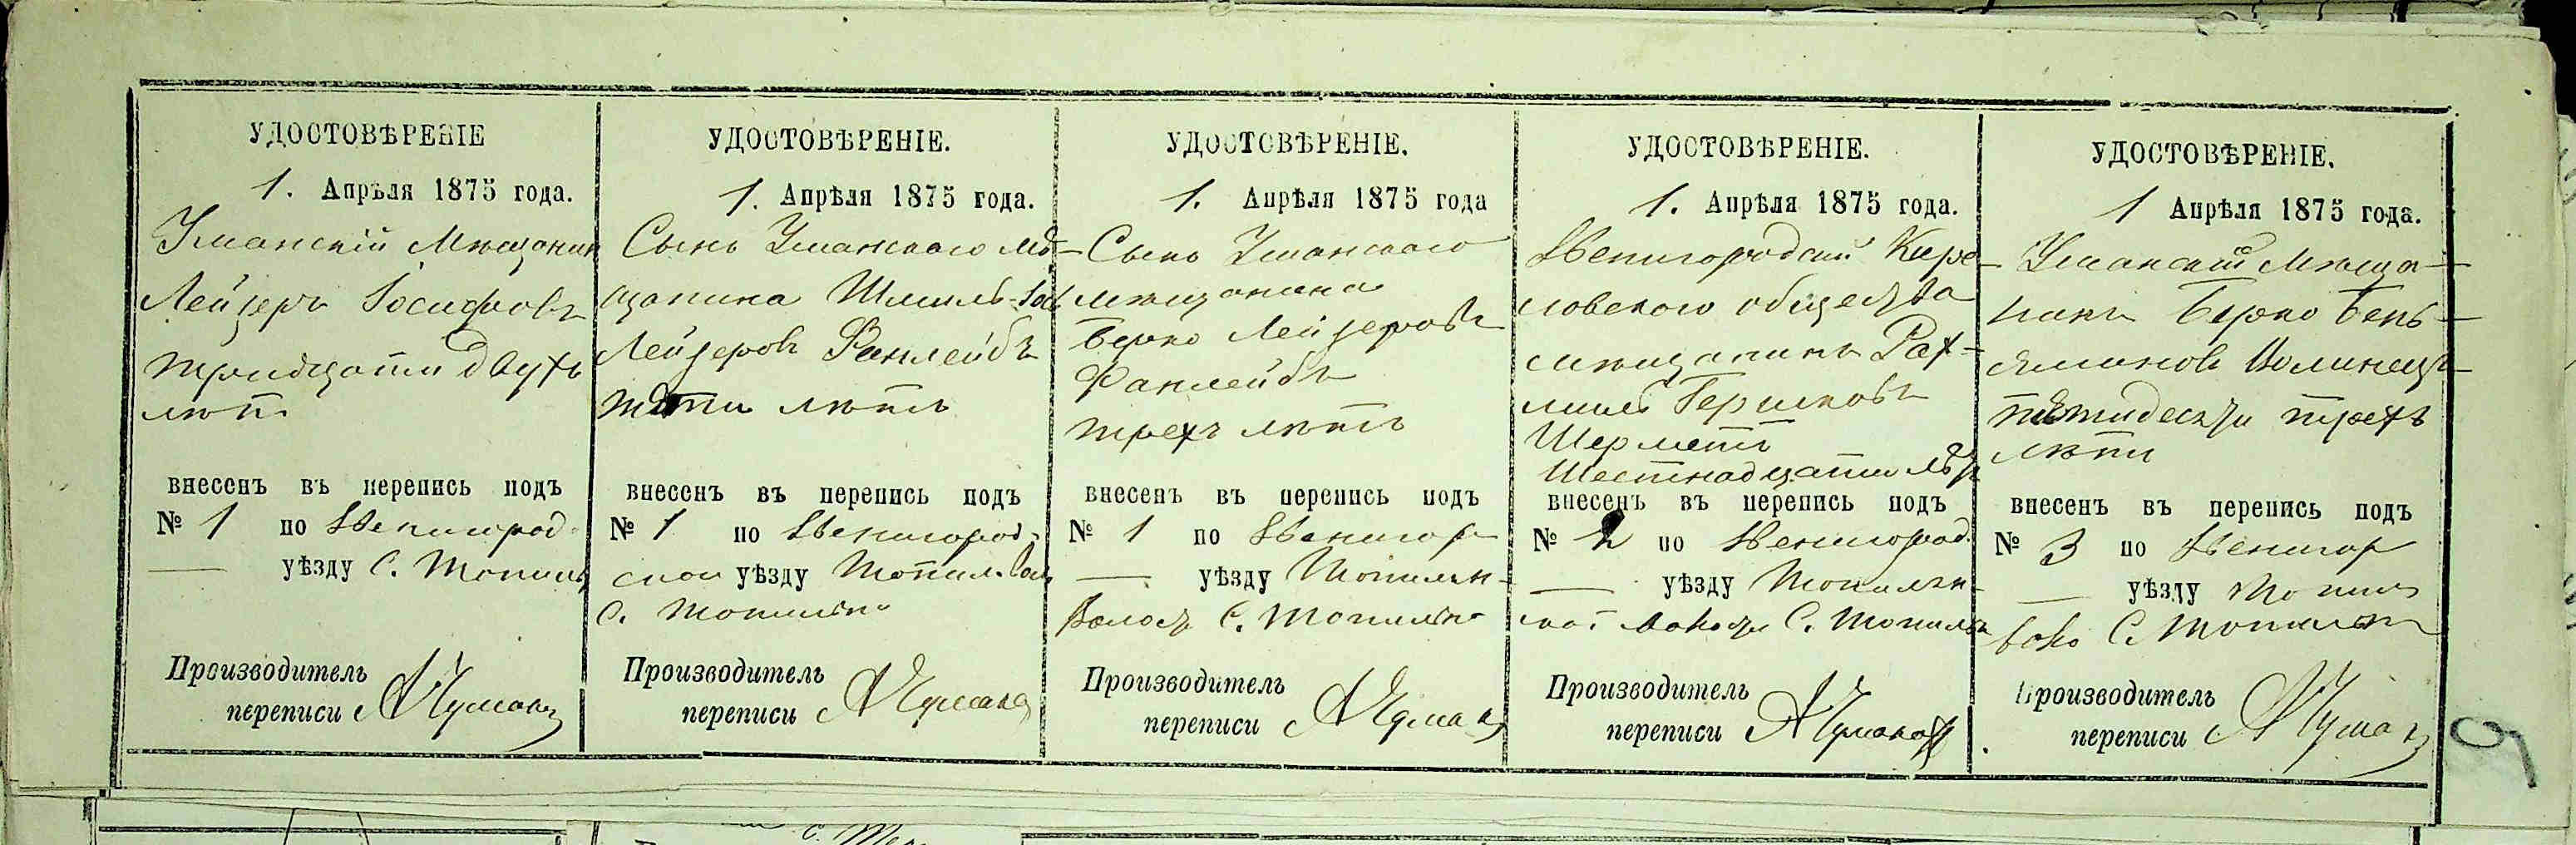 УДОСТОВѢРЕНІЕ
1. Апрѣля 1875 года.
Уманскій Мѣщанин
Лейзеръ Іосифовъ
тридцати двухъ
лѣтъ
внесенъ въ перепись подъ
№ 1 по Звенигород
— уѣзду С. Топиль
Производитель
переписи АЧумакъ
УДОСТОВѢРЕНІЕ.
1. Апрѣля 1875 года.
Сынъ Уманскаго мѣ-
щанина Шмиль-Іос
Лейзеровъ Фанлейбъ
пяти лѣтъ
внесенъ въ перепись подъ
№ 1 по Звенигород-
ском уѣзду Топил. Вол
С. Топильно
Производитель
переписи АЧумакъ
УДОСТОВѢРЕНІЕ.
1. Апрѣля 1875 года
Сынъ Уманскаго
мѣщанина
Берко Лейзеровъ
Фанлейбъ
трехъ лѣтъ
внесенъ въ перепись подъ
№ 1 по Звенигор
— уѣзду Топильн-
Волос С. Топильно
Производитель
переписи АЧумакъ
УДОСТОВѢРЕНІЕ.
1. Апрѣля 1875 года.
Звенигородскій Кире
ловского общества
мѣщанинъ Рах-
миль Гершковъ
Шерметъ
Шестнадцати лѣт
внесенъ въ перепись подъ
№ 2 по Звенигород.
— уѣзду Топильн-
ской волости С. Топильн
Производитель
переписи АЧумакъ
УДОСТОВѢРЕНІЕ.
1 Апрѣля 1875 года.
Уманскій Мѣща-
нинъ Берко Бень-
яминовъ Волинецъ
пятидесяти трехъ
лѣтъ
внесенъ въ перепись подъ
№ 3 по Звенигор
— уѣзду Топил
воло С. Топильн
Производитель
переписи АЧумакъ
9